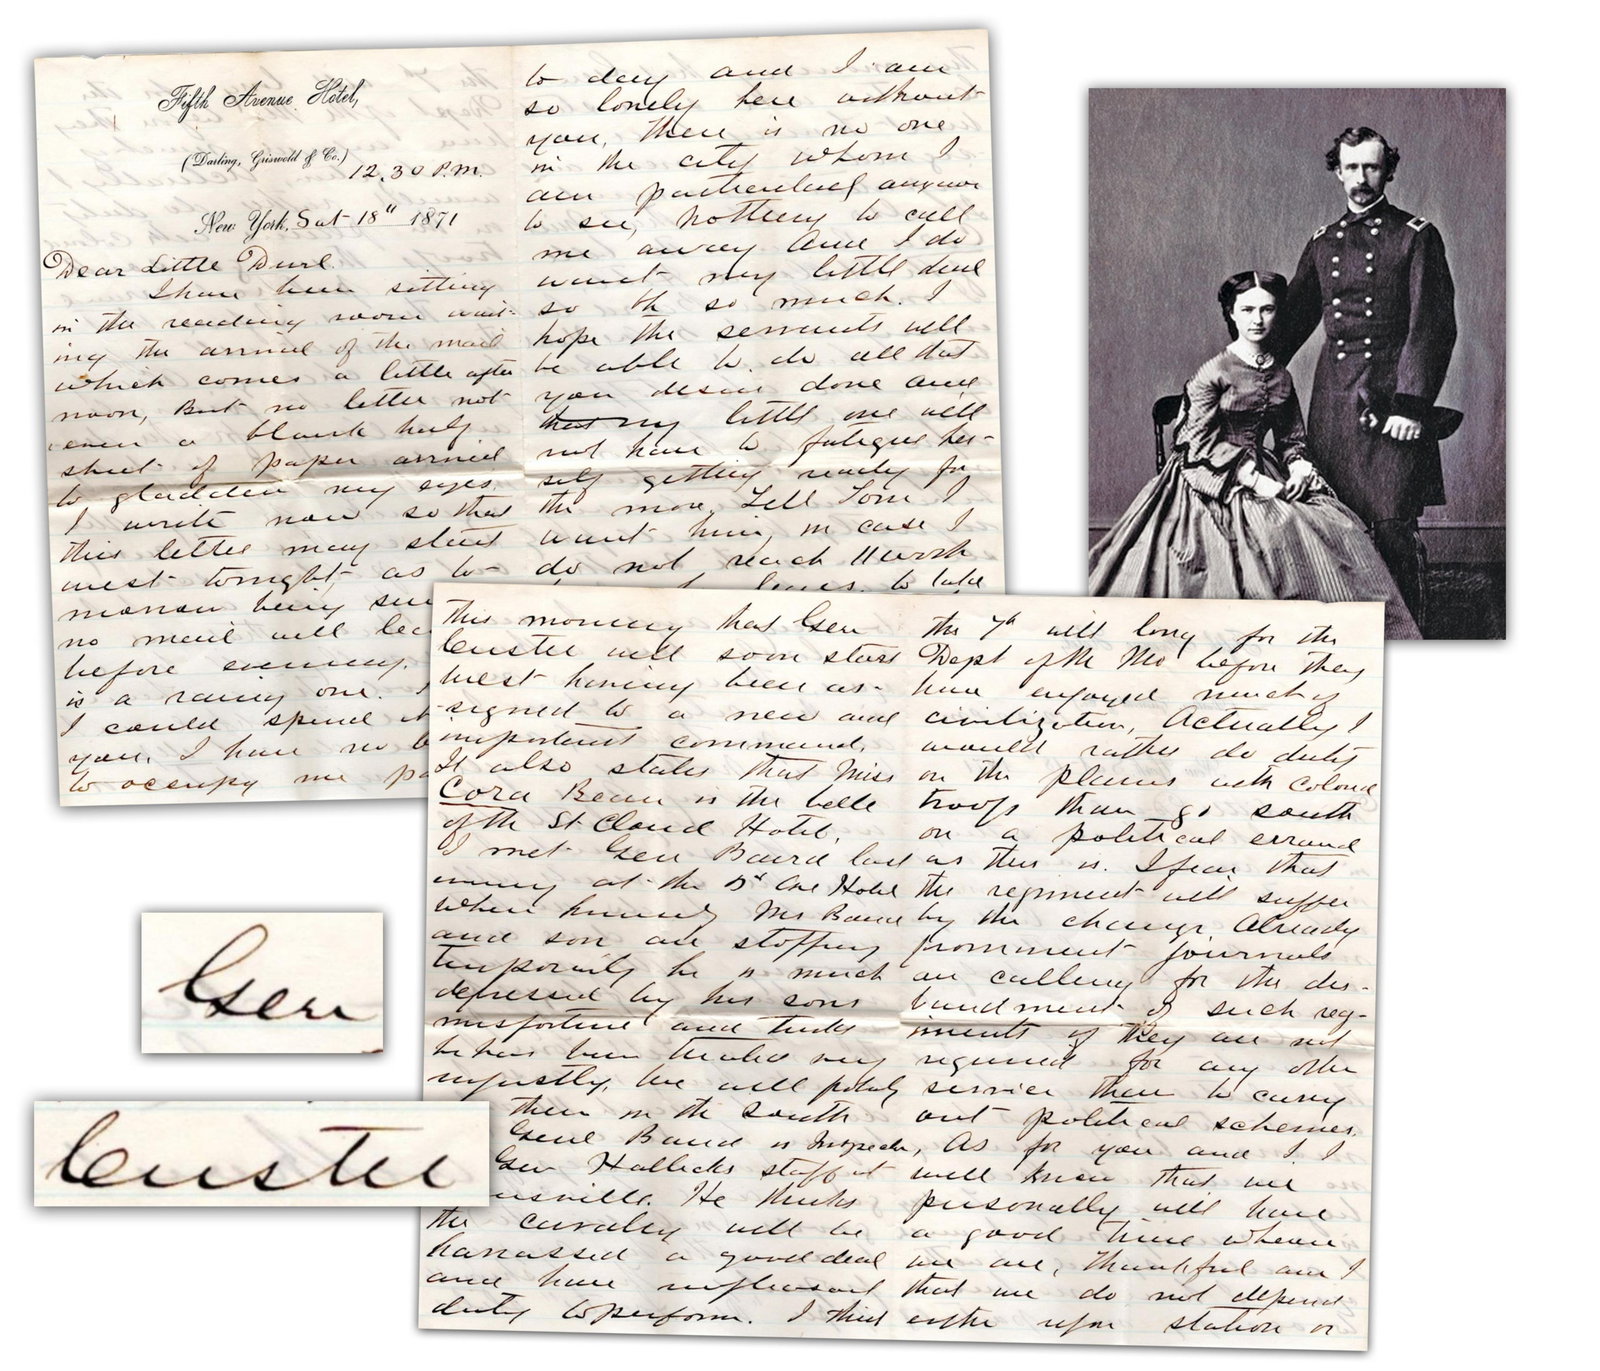 Fifth Avenue Hotel,
(Darling, Griswold & Co.)
12.30 P.M.
New York, Sat 18" 1871
Dear Little Durl.
I have been sitting
in the reading room wait-
ing the arrival of the mail
which comes a little after
noon, But no letter not
even a blank half
sheet of paper arrived
to gladden my eyes.
I write now so that
this letter may start
west tonight, as to-
morrow being
no mail will
before evening.
is a rainy one.
I could spend it
you, I have no
to occupy me
to day and I am
so lonely here without
you, there is no one
in the city whom I
am particularly anxious
to see, nothing to call
me away and I do
want my little durl
so oh so much. I
hope the servants will
be able to do all that
you desire done and
that my little one will
not have to fatigue her-
self getting ready for
the move. Tell Tom I
want him, in case I
do not reach
to take
this morning that Gen
Custer will soon start
West having been as-
signed to a new and
important command.
It also states that Miss
Cora Bean is the belle
of the St Cloud Hotel.
I met Gen Baird last
evening at the 5th Ave Hotel
where he and Mrs Baird
and son are stopping
temporarily he is much
depressed by his sons
misfortune and thinks
he has been treated very
unjustly. We will probably
them in the South
Genl Baird is Inspector,
Gen Hallecks staff at
isville. He thinks
the cavalry will be
harrassed a good deal
and have unpleasant
duty to perform. I think
the 7th will long for the
Dept of the Mo before they
have enjoyed much of
civilization, Actually I
would rather do duty
on the plains with colored
troops than go south
on a political errand
as this is. I fear that
the regiment will suffer
by the change. Already
prominent journals
are calling for the dis-
bandment of such reg-
iments if they are not
required for any other
service than to carry
out political schemes.
As for you and I I
well know that we
personally will have
a good time where
we are, thankful am I
that we do not depend
either upon station or
Gen
Custer